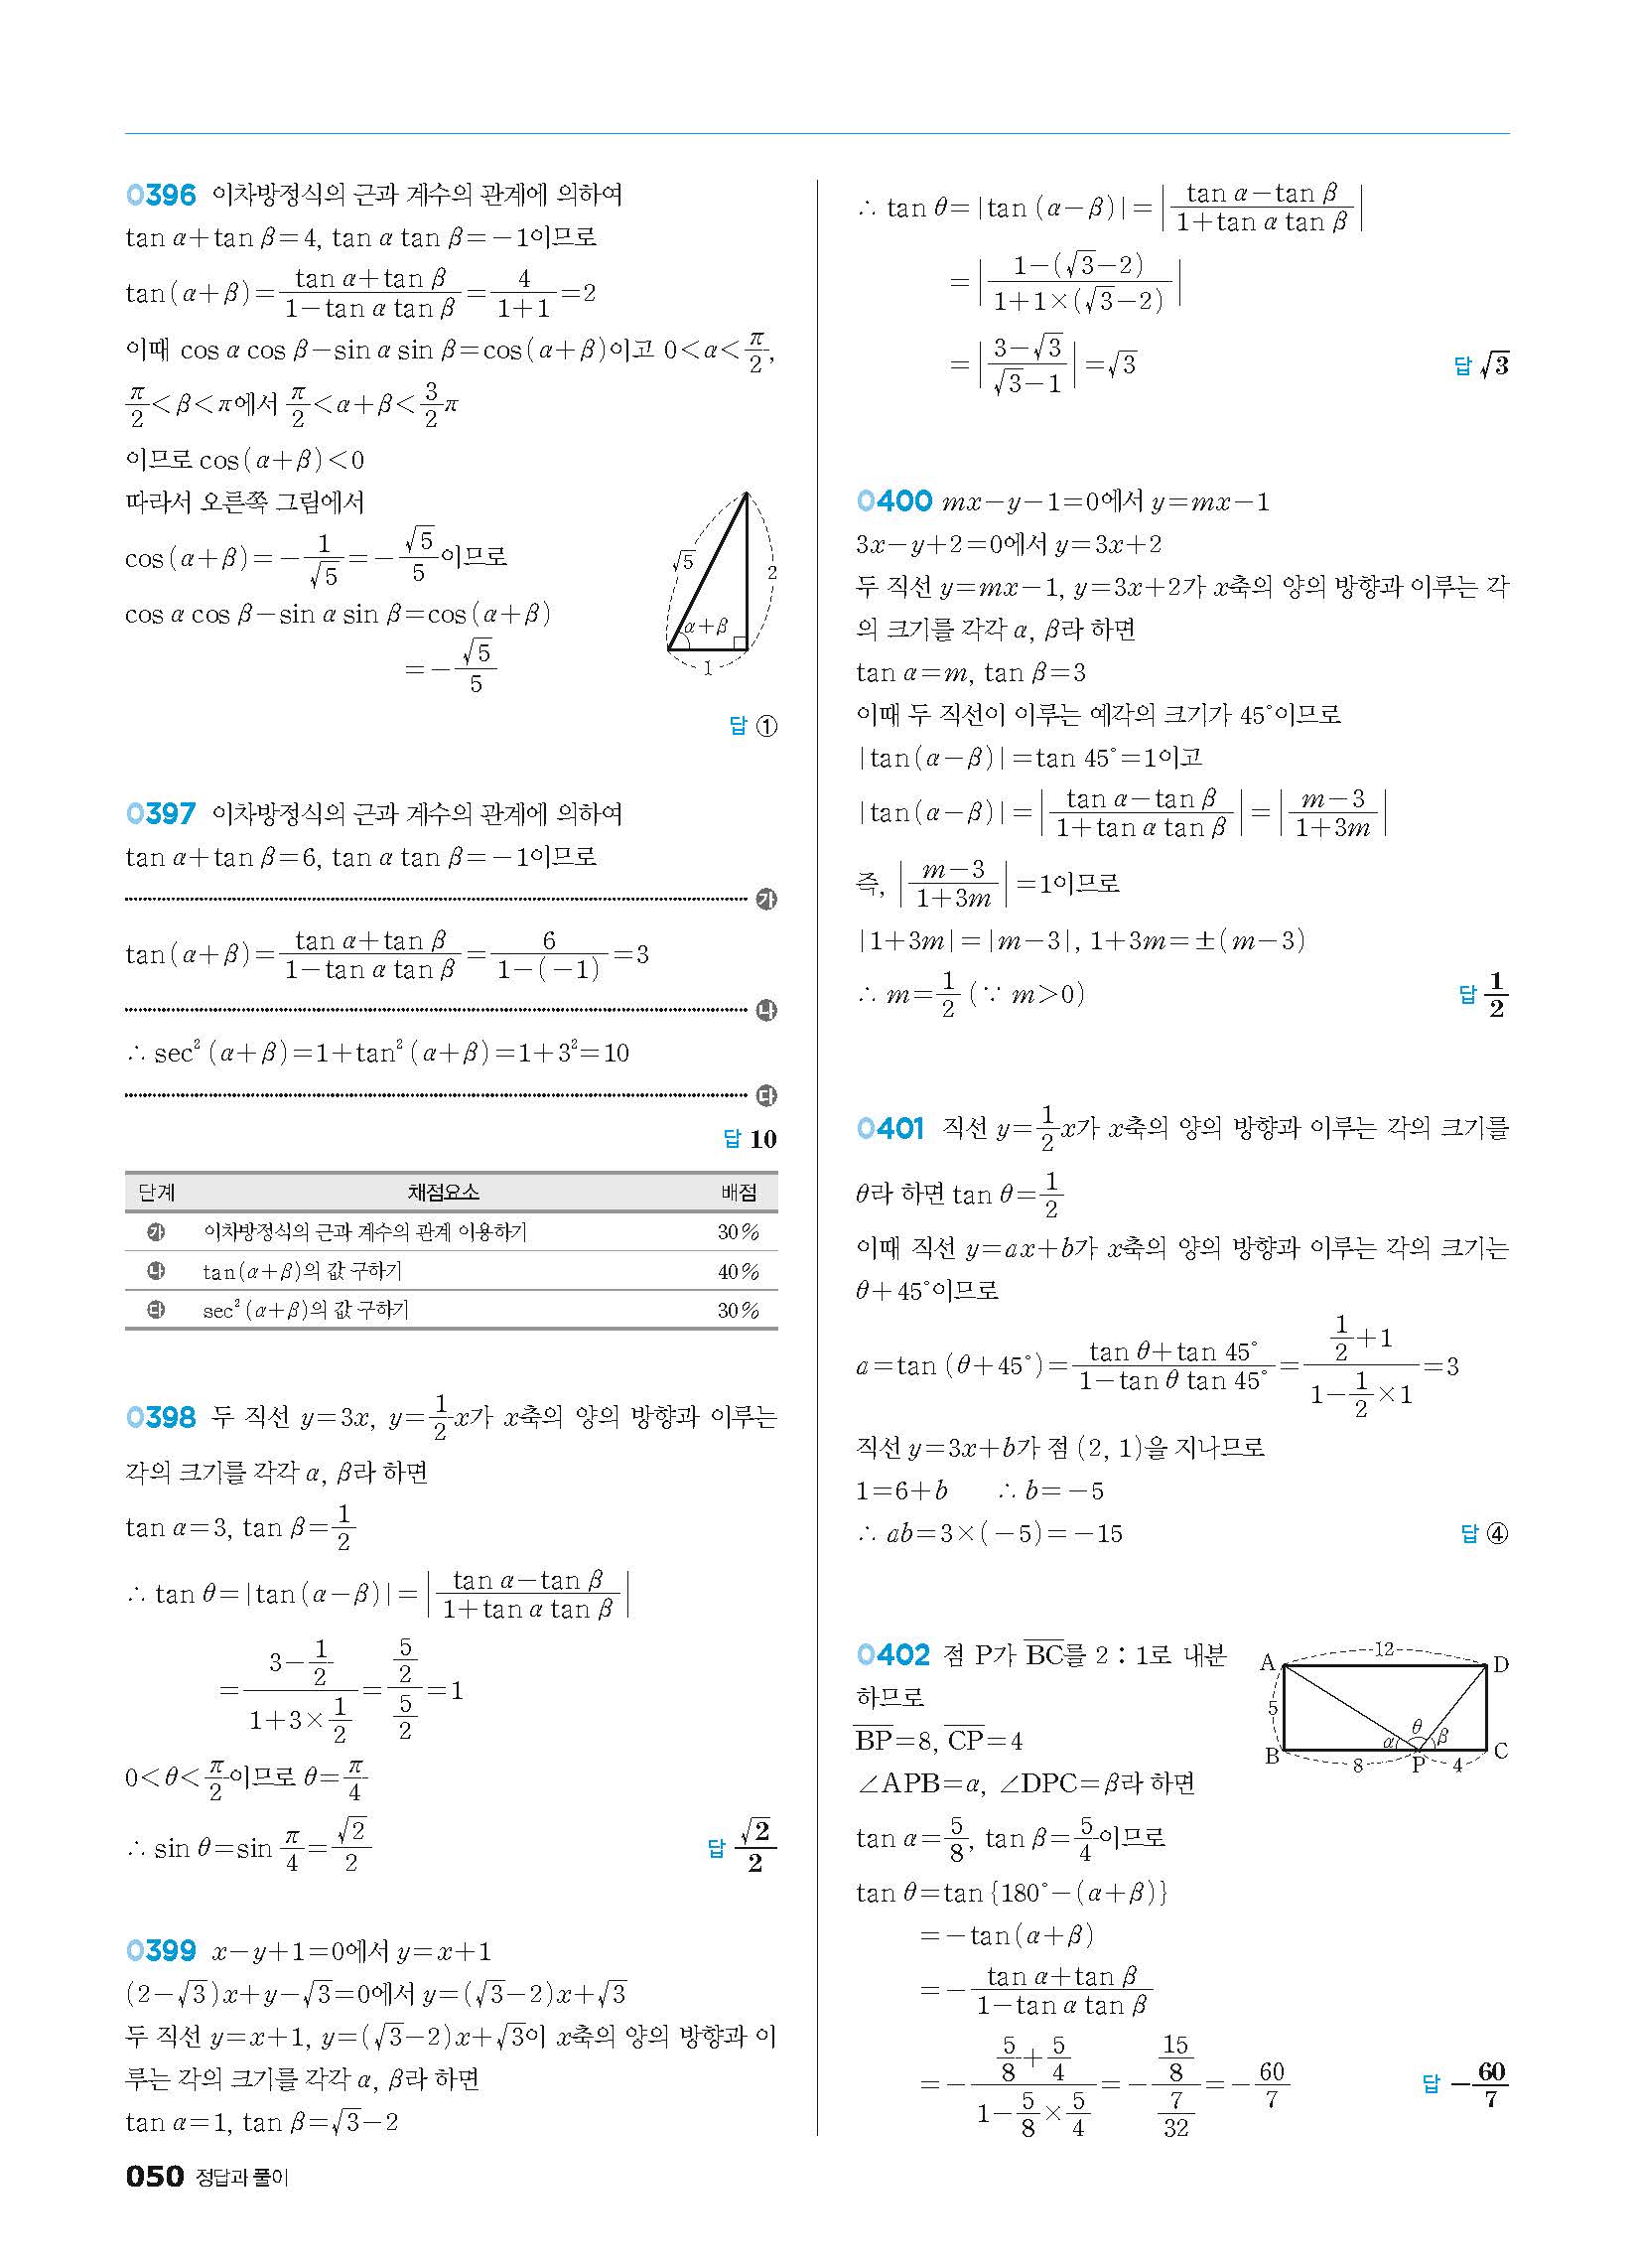 0396 이차방정식의 근과 계수의 관계에 의하여
tan α+tan β=4, tan α tan β=-1이므로
tan(α+β)=\frac{tan α+tan β}{1-tan α tan β}=\frac{4}{1+1}=2
이때 cos α cos β-sin α sin β=cos(α+β)이고 0<α<\frac{π}{2},
\frac{π}{2}<β<π에서 \frac{π}{2}<α+β<\frac{3}{2}π
이므로 cos(α+β)<0
따라서 오른쪽 그림에서
cos(α+β)=-\frac{1}{√5}=-\frac{√5}{5}이므로
cos α cos β-sin α sin β=cos(α+β)
=-\frac{√5}{5}
√5
2
α+β
1
답 ①
0397 이차방정식의 근과 계수의 관계에 의하여
tan α+tan β=6, tan α tan β=-1이므로
㉮
tan(α+β)=\frac{tan α+tan β}{1-tan α tan β}=\frac{6}{1-(-1)}=3
㉯
∴ sec²(α+β)=1+tan²(α+β)=1+3²=10
㉰
답 10
단계 채점요소 배점
㉮ 이차방정식의 근과 계수의 관계 이용하기 30%
㉯ tan(α+β)의 값 구하기 40%
㉰ sec²(α+β)의 값 구하기 30%
0398 두 직선 y=3x, y=\frac{1}{2}x가 x축의 양의 방향과 이루는
각의 크기를 각각 α, β라 하면
tan α=3, tan β=\frac{1}{2}
∴ tan θ=|tan(α-β)|=|\frac{tan α-tan β}{1+tan α tan β}|
=\frac{3-\frac{1}{2}}{1+3×\frac{1}{2}}=\frac{\frac{5}{2}}{\frac{5}{2}}=1
0<θ<\frac{π}{2}이므로 θ=\frac{π}{4}
∴ sin θ=sin \frac{π}{4}=\frac{√2}{2}
답 \frac{√2}{2}
0399 x-y+1=0에서 y=x+1
(2-√3)x+y-√3=0에서 y=(√3-2)x+√3
두 직선 y=x+1, y=(√3-2)x+√3이 x축의 양의 방향과 이
루는 각의 크기를 각각 α, β라 하면
tan α=1, tan β=√3-2
∴ tan θ=|tan (α-β)|=|\frac{tan α-tan β}{1+tan α tan β}|
=|\frac{1-(√3-2)}{1+1×(√3-2)}|
=|\frac{3-√3}{√3-1}|=√3
답 √3
0400 mx-y-1=0에서 y=mx-1
3x-y+2=0에서 y=3x+2
두 직선 y=mx-1, y=3x+2가 x축의 양의 방향과 이루는 각
의 크기를 각각 α, β라 하면
tan α=m, tan β=3
이때 두 직선이 이루는 예각의 크기가 45°이므로
|tan(α-β)|=tan 45°=1이고
|tan(α-β)|=|\frac{tan α-tan β}{1+tan α tan β}|=|\frac{m-3}{1+3m}|
즉, |\frac{m-3}{1+3m}|=1이므로
|1+3m|=|m-3|, 1+3m=±(m-3)
∴ m=\frac{1}{2} (∵ m>0)
답 \frac{1}{2}
0401 직선 y=\frac{1}{2}x가 x축의 양의 방향과 이루는 각의 크기를
θ라 하면 tan θ=\frac{1}{2}
이때 직선 y=ax+b가 x축의 양의 방향과 이루는 각의 크기는
θ+45°이므로
a=tan (θ+45°)=\frac{tan θ+tan 45°}{1-tan θ tan 45°}=\frac{\frac{1}{2}+1}{1-\frac{1}{2}×1}=3
직선 y=3x+b가 점 (2, 1)을 지나므로
1=6+b ∴ b=-5
∴ ab=3×(-5)=-15
답 ④
0402 점 P가 \overline{BC}를 2 : 1로 내분
하므로
\overline{BP}=8, \overline{CP}=4
∠APB=α, ∠DPC=β라 하면
A 12 D
5
θ
α β
B 8 P 4 C
tan α=\frac{5}{8}, tan β=\frac{5}{4}이므로
tan θ=tan {180°-(α+β)}
=-tan(α+β)
=-\frac{tan α+tan β}{1-tan α tan β}
=-\frac{\frac{5}{8}+\frac{5}{4}}{1-\frac{5}{8}×\frac{5}{4}}=-\frac{\frac{15}{8}}{\frac{7}{32}}=-\frac{60}{7}
답 -\frac{60}{7}
050 정답과 풀이